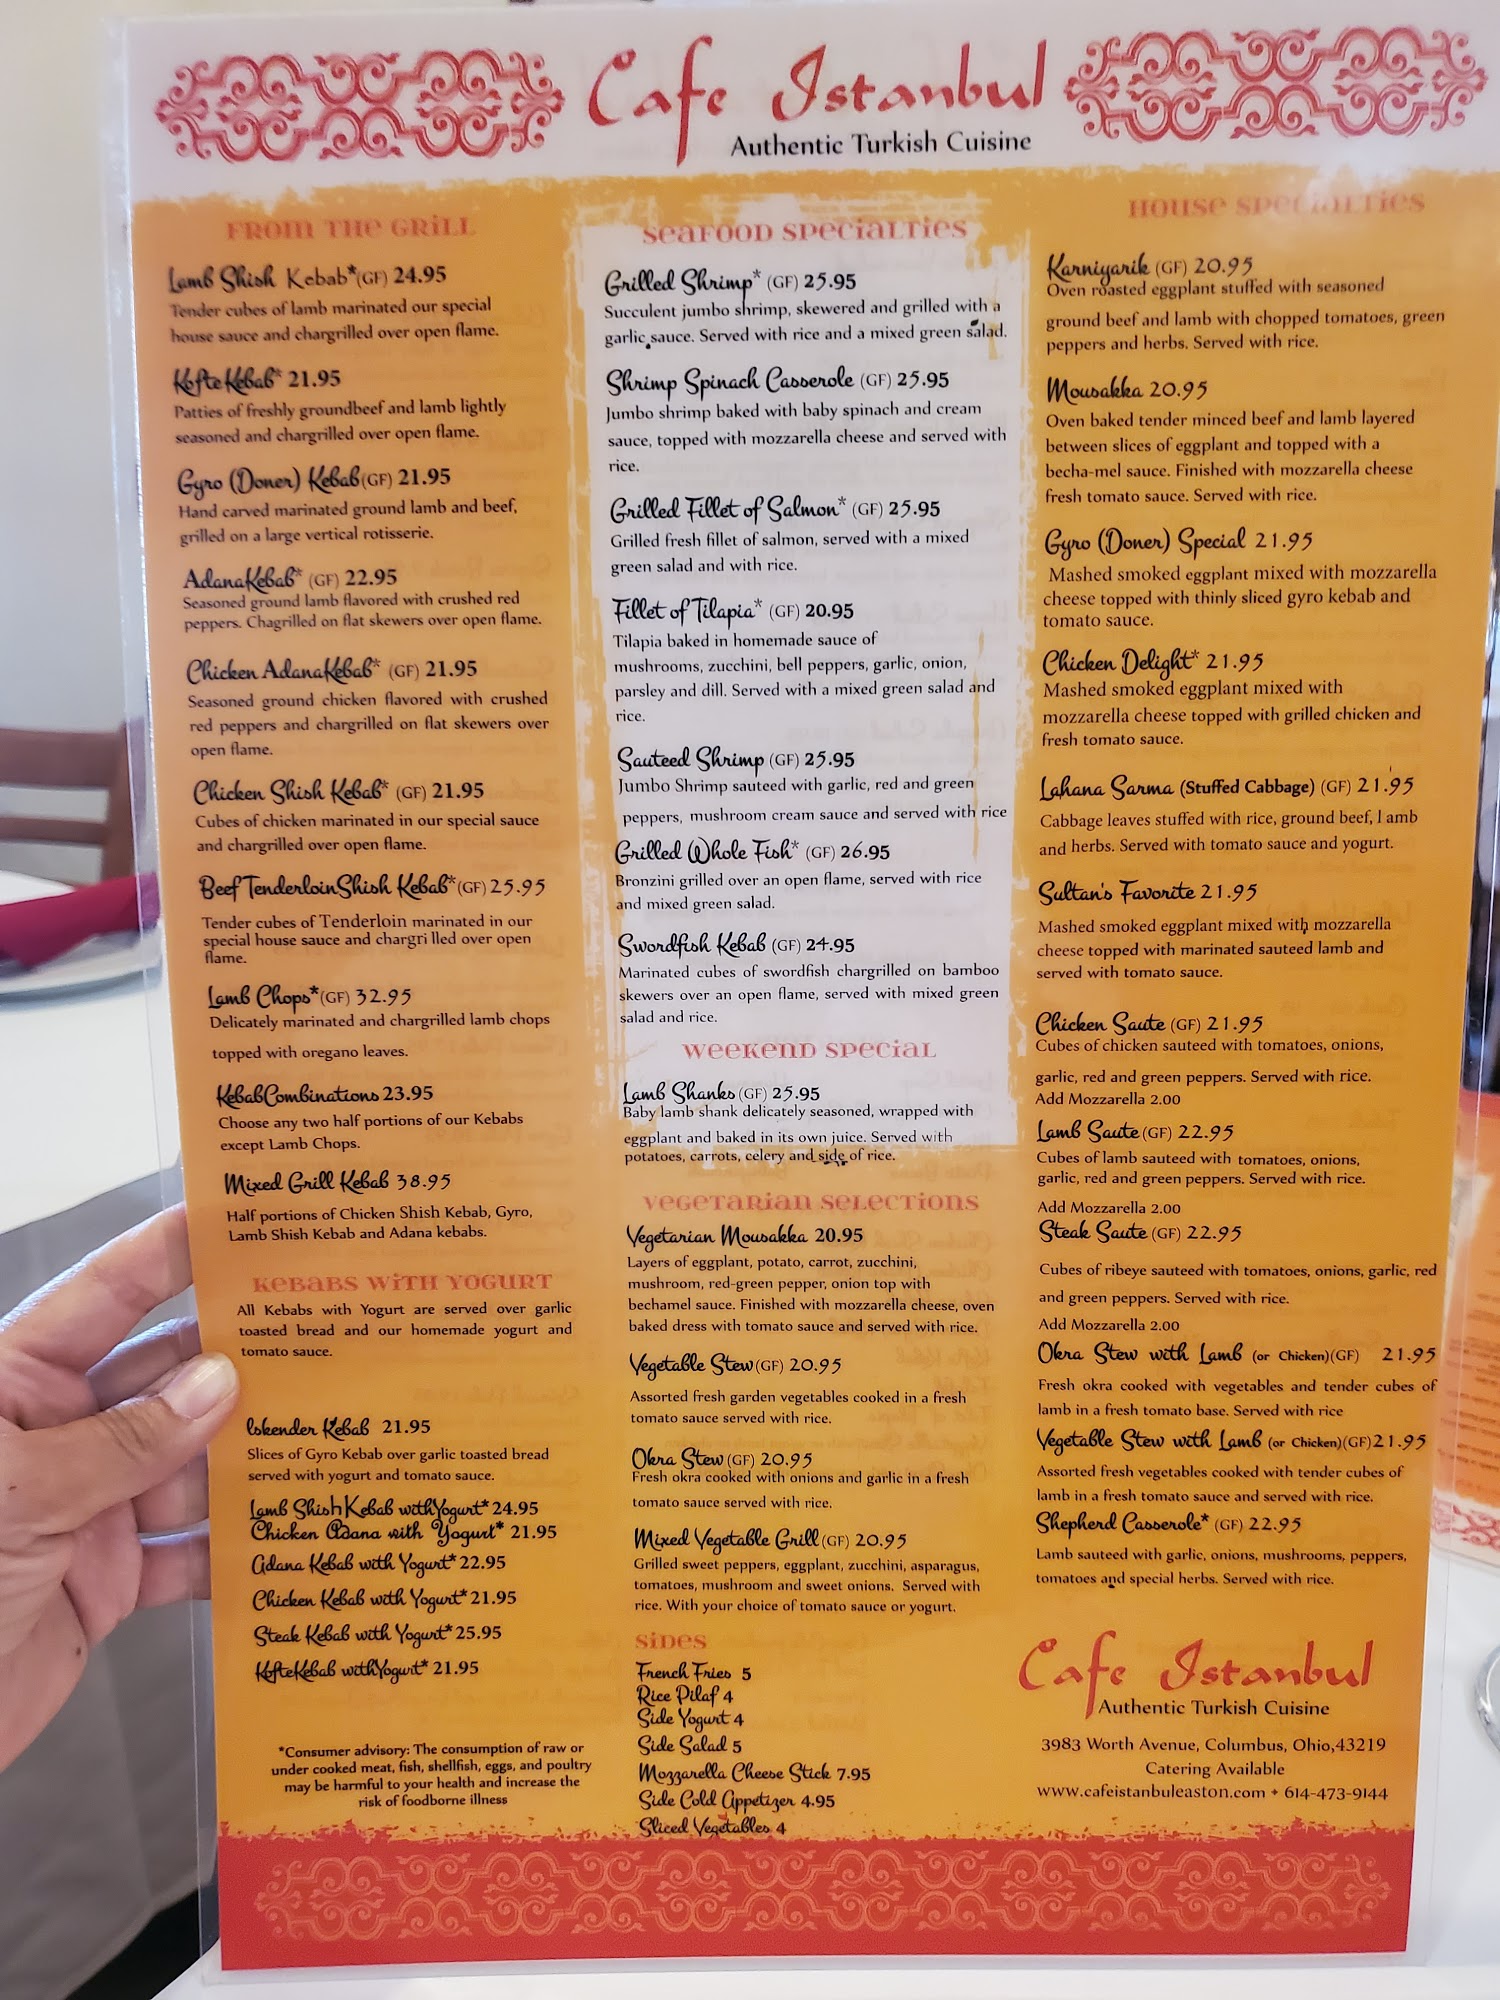 Cafe Istanbul
Authentic Turkish Cuisine
FROM THE GRILL
Lamb Shish Kebab*(GF) 24.95
Tender cubes of lamb marinated our special
house sauce and chargrilled over open flame.
Kofte Kebab* 21.95
Patties of freshly groundbeef and lamb lightly
seasoned and chargrilled over open flame.
Gyro (Doner) Kebab(GF) 21.95
Hand carved marinated ground lamb and beef,
grilled on a large vertical rotisserie.
AdanaKebab* (GF) 22.95
Seasoned ground lamb flavored with crushed red
peppers. Chagrilled on flat skewers over open flame.
Chicken AdanaKebab* (GF) 21.95
Seasoned ground chicken flavored with crushed
red peppers and chargrilled on flat skewers over
open flame.
Chicken Shish Kebab* (GF) 21.95
Cubes of chicken marinated in our special sauce
and chargrilled over open flame.
Beef TenderloinShish Kebab*(GF) 25.95
Tender cubes of Tenderloin marinated in our
special house sauce and chargri lled over open
flame.
Lamb Chops*(GF) 32.95
Delicately marinated and chargrilled lamb chops
topped with oregano leaves.
KebabCombinations 23.95
Choose any two half portions of our Kebabs
except Lamb Chops.
Mixed Grill Kebab 38.95
Half portions of Chicken Shish Kebab, Gyro,
Lamb Shish Kebab and Adana kebabs.
KEBABS WITH YOGURT
All Kebabs with Yogurt are served over garlic
toasted bread and our homemade yogurt and
tomato sauce.
Iskender Kebab 21.95
Slices of Gyro Kebab over garlic toasted bread
served with yogurt and tomato sauce.
Lamb Shish Kebab withYogurt* 24.95
Chicken Adana with Yogurt* 21.95
Adana Kebab with Yogurt* 22.95
Chicken Kebab with Yogurt* 21.95
Steak Kebab with Yogurt* 25.95
KofteKebab withYogurt* 21.95
*Consumer advisory: The consumption of raw or
under cooked meat, fish, shellfish, eggs, and poultry
may be harmful to your health and increase the
risk of foodborne illness
SEAFOOD SPECIALTIES
Grilled Shrimp* (GF) 25.95
Succulent jumbo shrimp, skewered and grilled with a
garlic sauce. Served with rice and a mixed green salad.
Shrimp Spinach Casserole (GF) 25.95
Jumbo shrimp baked with baby spinach and cream
sauce, topped with mozzarella cheese and served with
rice.
Grilled Fillet of Salmon* (GF) 25.95
Grilled fresh fillet of salmon, served with a mixed
green salad and with rice.
Fillet of Tilapia* (GF) 20.95
Tilapia baked in homemade sauce of
mushrooms, zucchini, bell peppers, garlic, onion,
parsley and dill. Served with a mixed green salad and
rice.
Sauteed Shrimp (GF) 25.95
Jumbo Shrimp sauteed with garlic, red and green
peppers, mushroom cream sauce and served with rice
Grilled Whole Fish* (GF) 26.95
Bronzini grilled over an open flame, served with rice
and mixed green salad.
Swordfish Kebab (GF) 24.95
Marinated cubes of swordfish chargrilled on bamboo
skewers over an open flame, served with mixed green
salad and rice.
WEEKEND SPECIAL
Lamb Shanks (GF) 25.95
Baby lamb shank delicately seasoned, wrapped with
eggplant and baked in its own juice. Served with
potatoes, carrots, celery and side of rice.
VEGETARIAN SELECTIONS
Vegetarian Mousakka 20.95
Layers of eggplant, potato, carrot, zucchini,
mushroom, red-green pepper, onion top with
bechamel sauce. Finished with mozzarella cheese, oven
baked dress with tomato sauce and served with rice.
Vegetable Stew(GF) 20.95
Assorted fresh garden vegetables cooked in a fresh
tomato sauce served with rice.
Okra Stew (GF) 20.95
Fresh okra cooked with onions and garlic in a fresh
tomato sauce served with rice.
Mixed Vegetable Grill(GF) 20.95
Grilled sweet peppers, eggplant, zucchini, asparagus,
tomatoes, mushroom and sweet onions. Served with
rice. With your choice of tomato sauce or yogurt.
SIDES
French Fries 5
Rice Pilaf 4
Side Yogurt 4
Side Salad 5
Mozzarella Cheese Stick 7.95
Side Cold Appetizer 4.95
Sliced Vegetables 4
HOUSE SPECIALTIES
Karniyarik (GF) 20.95
Oven roasted eggplant stuffed with seasoned
ground beef and lamb with chopped tomatoes, green
peppers and herbs. Served with rice.
Mousakka 20.95
Oven baked tender minced beef and lamb layered
between slices of eggplant and topped with a
becha-mel sauce. Finished with mozzarella cheese
fresh tomato sauce. Served with rice.
Gyro (Doner) Special 21.95
Mashed smoked eggplant mixed with mozzarella
cheese topped with thinly sliced gyro kebab and
tomato sauce.
Chicken Delight* 21.95
Mashed smoked eggplant mixed with
mozzarella cheese topped with grilled chicken and
fresh tomato sauce.
Lahana Sarma (Stuffed Cabbage) (GF) 21.95
Cabbage leaves stuffed with rice, ground beef, l amb
and herbs. Served with tomato sauce and yogurt.
Sultan's Favorite 21.95
Mashed smoked eggplant mixed with mozzarella
cheese topped with marinated sauteed lamb and
served with tomato sauce.
Chicken Saute (GF) 21.95
Cubes of chicken sauteed with tomatoes, onions,
garlic, red and green peppers. Served with rice.
Add Mozzarella 2.00
Lamb Saute(GF) 22.95
Cubes of lamb sauteed with tomatoes, onions,
garlic, red and green peppers. Served with rice.
Add Mozzarella 2.00
Steak Saute (GF) 22.95
Cubes of ribeye sauteed with tomatoes, onions, garlic, red
and green peppers. Served with rice.
Add Mozzarella 2.00
Okra Stew with Lamb (or Chicken)(GF) 21.95
Fresh okra cooked with vegetables and tender cubes of
lamb in a fresh tomato base. Served with rice
Vegetable Stew with Lamb (or Chicken)(GF)21.95
Assorted fresh vegetables cooked with tender cubes of
lamb in a fresh tomato sauce and served with rice.
Shepherd Casserole* (GF) 22.95
Lamb sauteed with garlic, onions, mushrooms, peppers,
tomatoes and special herbs. Served with rice.
Cafe Istanbul
Authentic Turkish Cuisine
3983 Worth Avenue, Columbus, Ohio,43219
Catering Available
www.cafeistanbuleaston.com • 614-473-9144